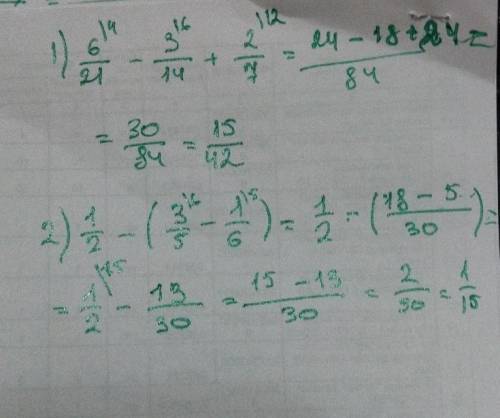 1) 6/21 \4 − 3/14 \6 + 2/7 \12 = (24 − 18 + 24)/84 =
= 30/84 = 15/42
2) 1/2 − (3/5 \6 − 1/6 \5) = 1/2 − ((18 − 5)/30) =
= 1/2 \15 − 13/30 = (15 − 13)/30 = 2/30 = 1/15